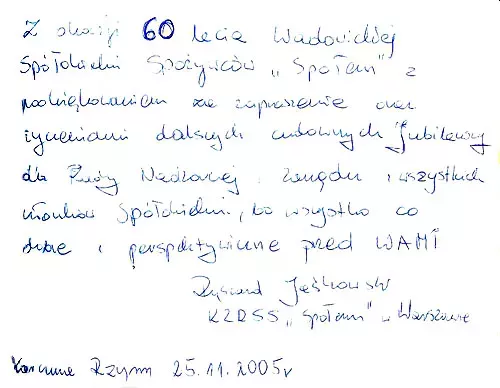 Z okazji 60 lecia Wadowickiej
Spółdzielni Spożywców „Społem” z
podziękowaniem za zaproszenie oraz
życzeniami dalszych cudownych Jubileuszy
dla Rady Nadzorczej, Zarządu i wszystkich
członków Spółdzielni, bo wszystko co
dobre i perspektywiczne przed WAMI
Ryszard Jaśkowski
KZRSS „Społem” w Warszawie
Rzym 25.11.2005r